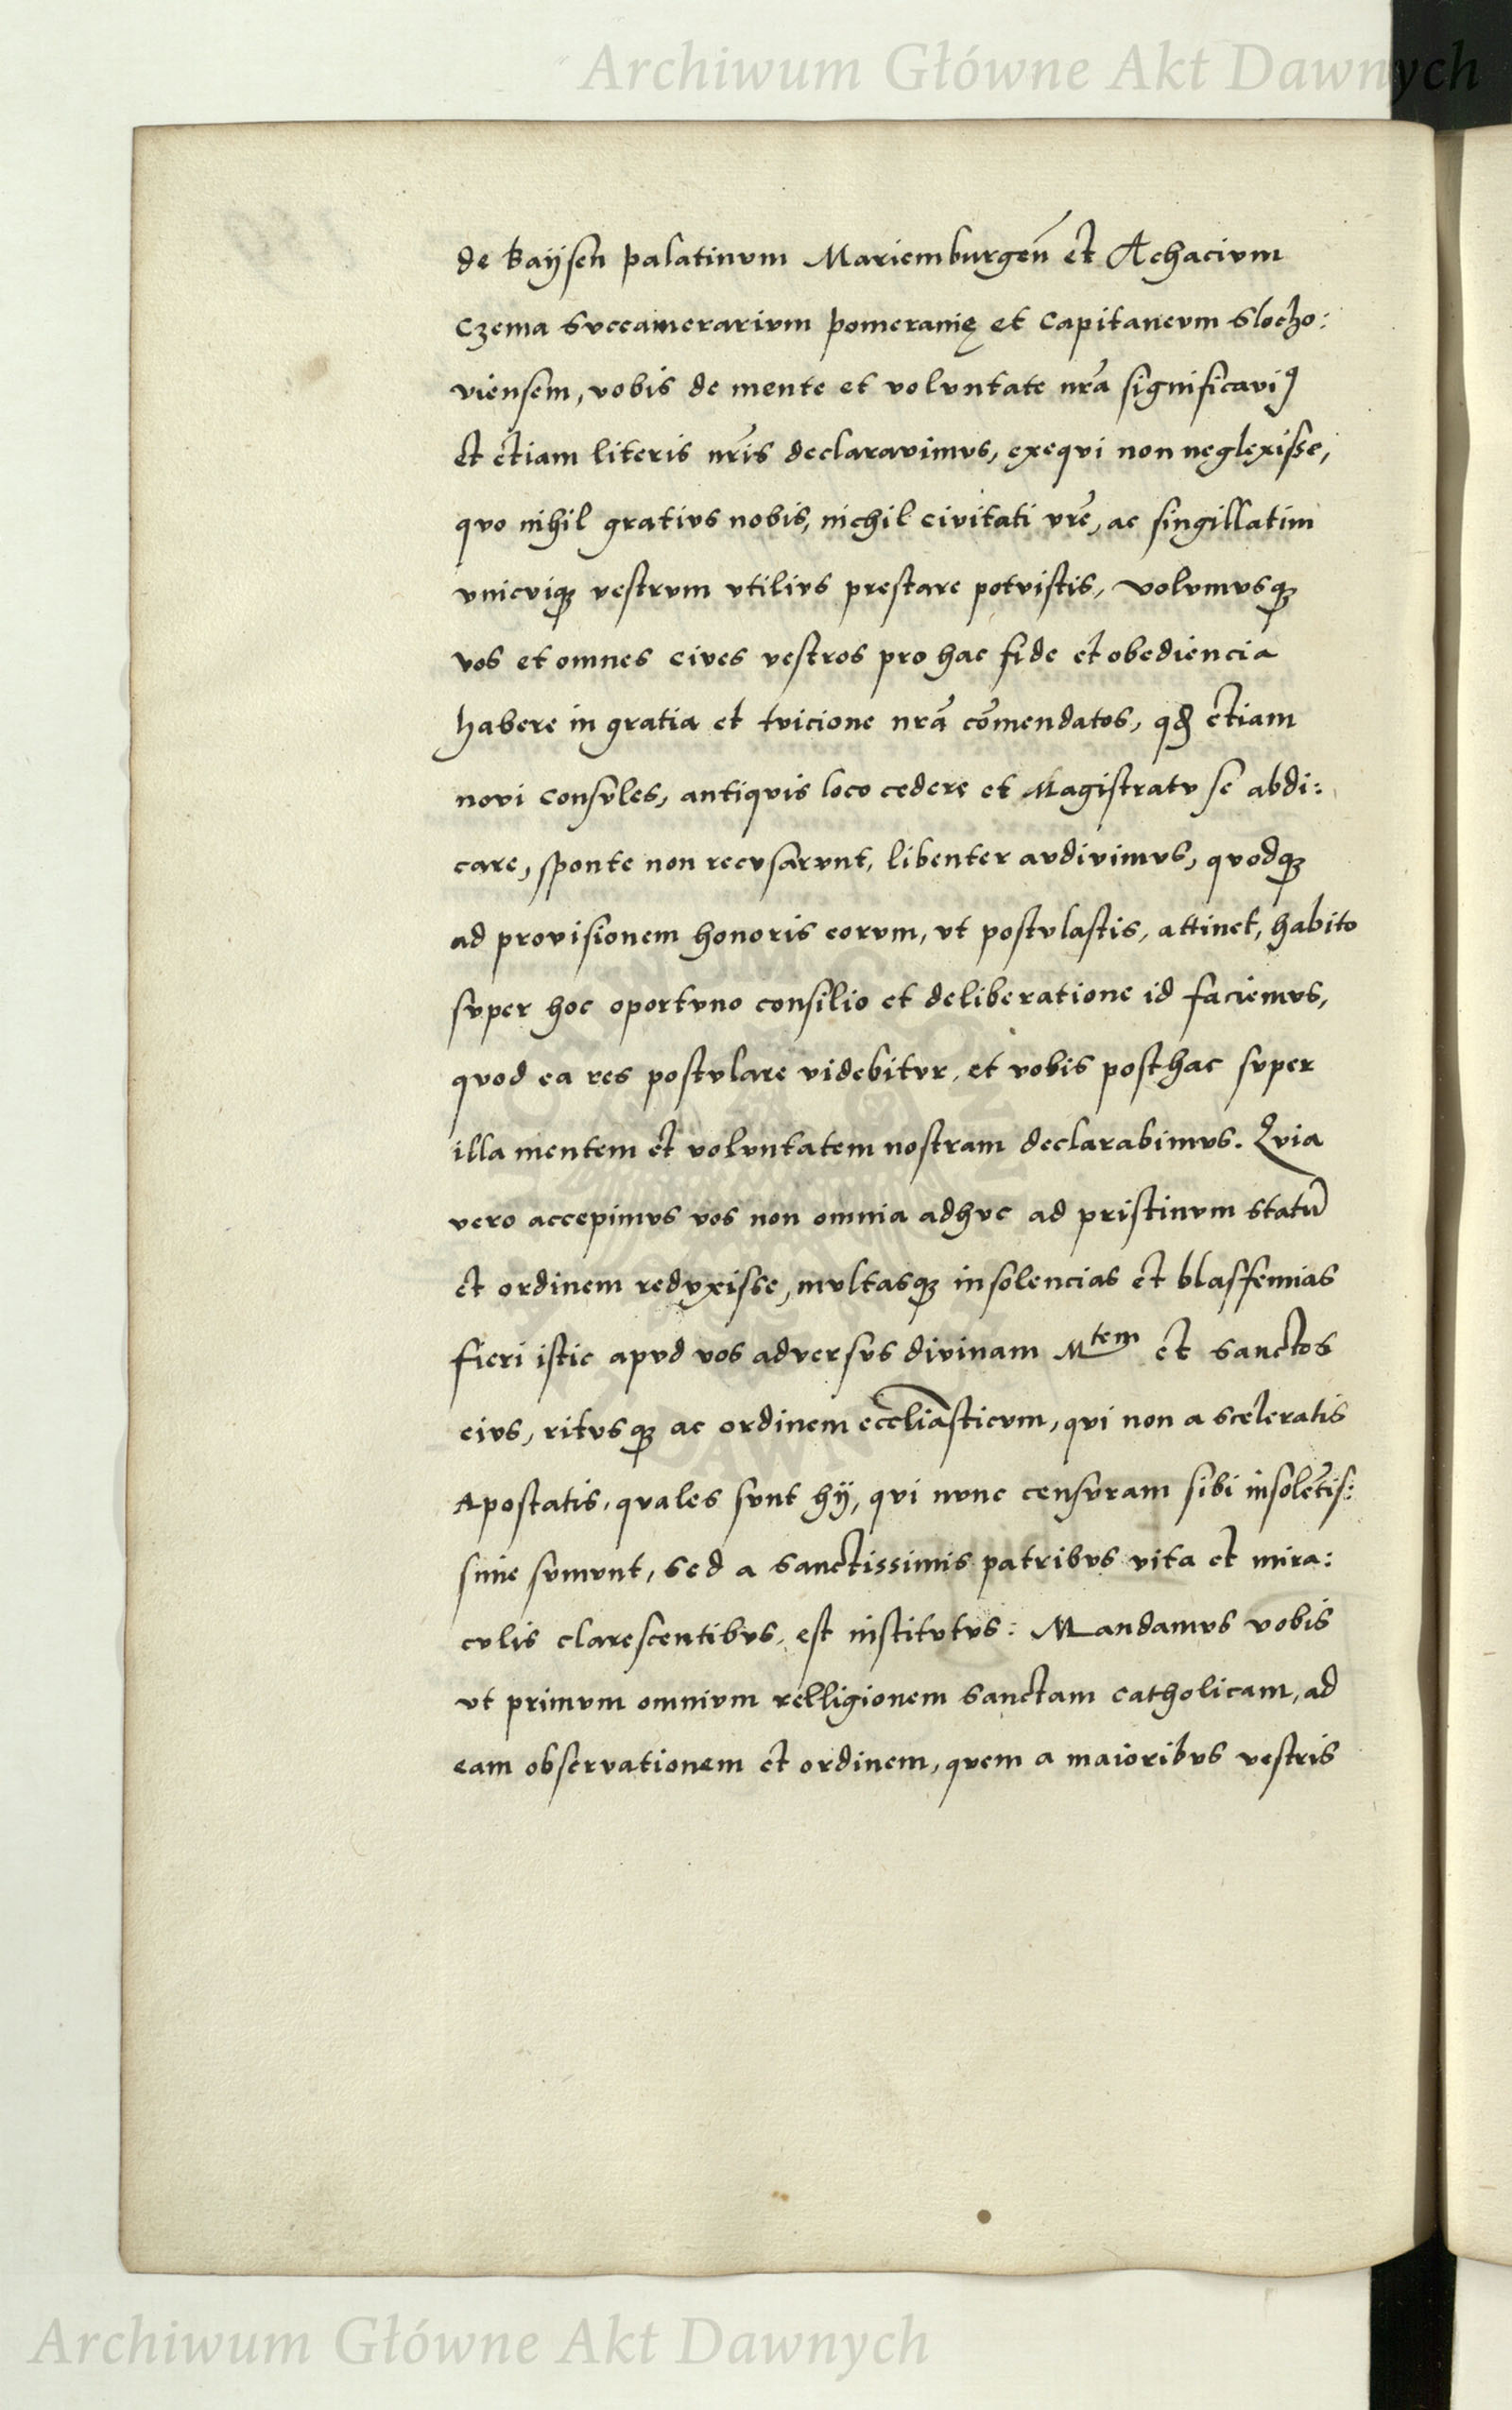 Archiwum Główne Akt Dawnych
de Baÿsen palatinvm Mariemburgeñ et Achacivm
Czema Svccamerarivm pomeranię et Capitanevm Slocho:
viensem, vobis de mente et volvntate nr̃a significaviꝯ
et etiam literis nr̃is declaravimvs, exeqvi non neglexisse,
qvo nihil grativs nobis, nichil civitati vr̃e, ac singillatim
vnicviqꝫ vestrvm vtilivs prestare potvistis, volvmvsqꝫ
vos et omnes cives vestros pro hac fide et obediencia
habere in gratia et tvicione nr̃a com̃endatos, qđ etiam
novi Consvles, antiqvis loco cedere et Magistratv se abdi:
care, sponte non recvsarvnt, libenter avdivimvs, qvodqꝫ
ad provisionem honoris eorvm, vt postvlastis, attinet, habito
svper hoc oportvno consilio et deliberatione id faciemvs,
qvod ea res postvlare videbitvr, et vobis posthac svper
illa mentem et volvntatem nostram declarabimvs. Qvia
vero accepimvs vos non omnia adhvc ad pristinvm statũ
et ordinem redvxisse, mvltasqꝫ insolencias et blasfemias
fieri istic apvd vos adversvs divinam Mtem et Sanctos
eivs, ritvsqꝫ ac ordinem eccl̃iasticvm, qvi non a sceleratis
Apostatis, qvales svnt hÿ, qvi nvnc censvram sibi insolẽtis:
sime svmvnt, sed a Sanctissimis patribvs vita et mira:
cvlis clarescentibvs, est institvtvs: Mandamvs vobis
vt primvm omnivm relligionem Sanctam Catholicam, ad
eam observationem et ordinem, qvem a maioribvs vestris
Archiwum Główne Akt Dawnych